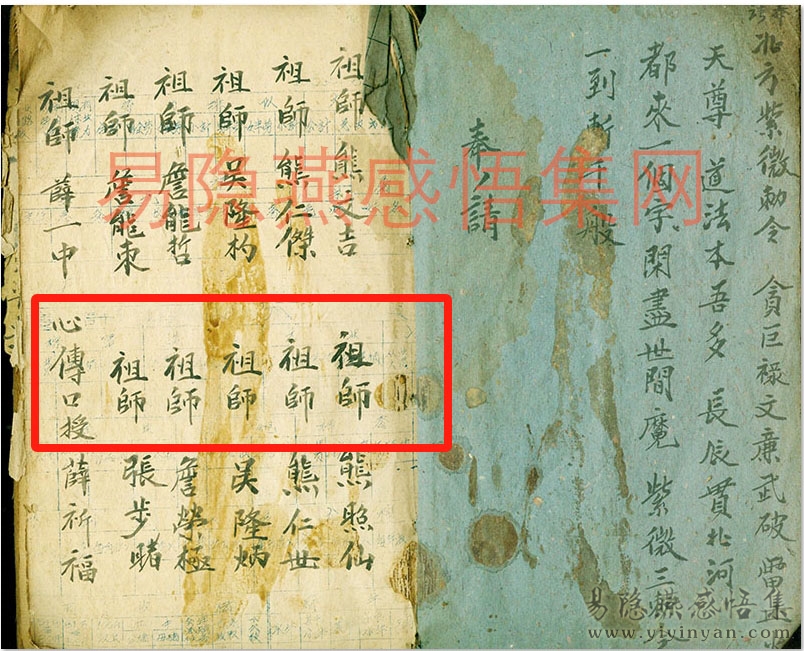 北方紫微勅令 貪巨祿文廉武破
天尊 道法本吾多 長辰貫北河
都來一個字 閑盡世間魔 紫微三
一到斬 般
奉請
祖師 熊文吉 祖師 熊照仙
祖師 熊仁傑 祖師 熊仁世
祖師 吳隆杓 祖師 吳隆炳
祖師 詹能哲 祖師 詹榮極
祖師 詹能東 祖師 張步賭
祖師 薛一中 心傳口授 薛祈福
易隐燕感悟集网
易隐燕感悟集
www.yiyinyan.com